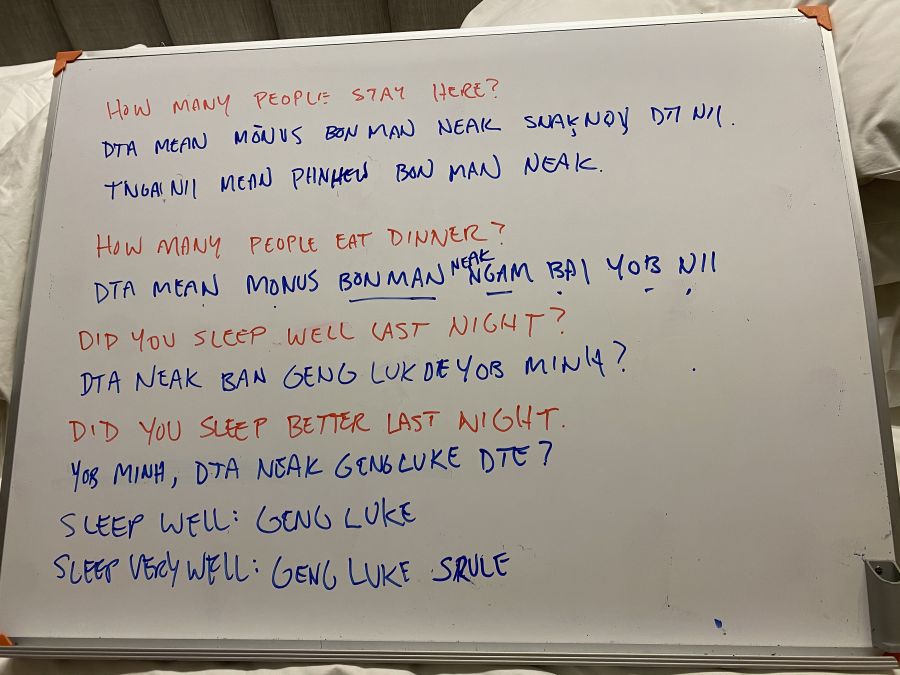 HOW MANY PEOPLE STAY HERE?
DTA MEAN MONUS BON MAN NEAK SNAKNOV DTI NII.
TNGAI NII MEAN PHNHEW BON MAN NEAK.
HOW MANY PEOPLE EAT DINNER?
DTA MEAN MONUS BON MAN NEAK NGAM BAI YOB NII
DID YOU SLEEP WELL LAST NIGHT?
DTA NEAK BAN GENG LUK DE YOB MINH?
DID YOU SLEEP BETTER LAST NIGHT.
YOB MINH, DTA NEAK GENG LUKE DTE?
SLEEP WELL: GENG LUKE
SLEEP VERY WELL: GENG LUKE SRULE